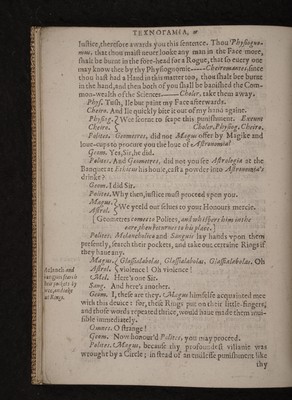 TEXNOΓAMIA,
Iustice, therefore awards you this sentence. Thou Physiogno-
mus, that thou maist neuer looke any man in the Face more,
shalt be burnt in the fore-head for a Rogue, that so euery one
may know thee by thy Physiognomie.——Cheiromantes, since
thou hast had a Hand in this matter too, thou shalt bee burnt
in the hand, and then both of you shall be banished the Com-
mon-wealth of the Sciences.——Choler, take them away.
Phys. Tush, Ile but paint my Face afterwards.
Cheiro. And Ile quickly licke it out of my hand againe.
Physiog. Wee scorne to scape this punishment. Exeunt
Cheiro. Choler, Physiog. Cheiro.
Polites. Geometres, did not Magus offer by Magike and
loue-cups to procure you the loue of Astronomia?
Geom. Yes, Sir, he did.
Polites. And Geometres, did not you see Astrologia at the
Banquet at his house, cast a powder into Astronomia's
drinke?
Geom. I did Sir.
Polites. Why then, iustice must proceed vpon you.
Magus. We yeeld our selues to your Honours mercie.
Astrol.
[Geometres comes to Polites, and whispers him in the
eare, then returnes to his place.]
Polites. Melancholico and Sanguis lay hands vpon them
presently, search their pockets, and take out certaine Rings if
they haue any.
Magus. Glassialabolas, Glassialabolas, Glassialabolas. Oh
Astrol. violence! Oh violence!
Mel. Here's one Sir.
Sang. And here's another.
Geom. I, these are they. Magus himselfe acquainted mee
with this secret: for, these Rings put on their little-fingers,
and those words repeated thrice, would haue made them inui-
sible immediately.
Omnes. O strange!
Geom. Now honour'd Polites, you may proceed.
Polites. Magus, because thy profoundest villanie was
wrought by a Circle; instead of an endlesse punishment like
thy